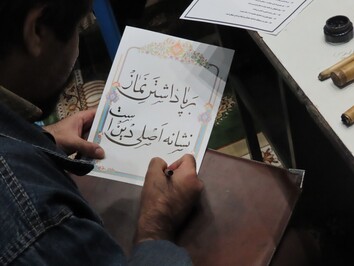 برپا داشتن نماز
نشانه اصلی دین است